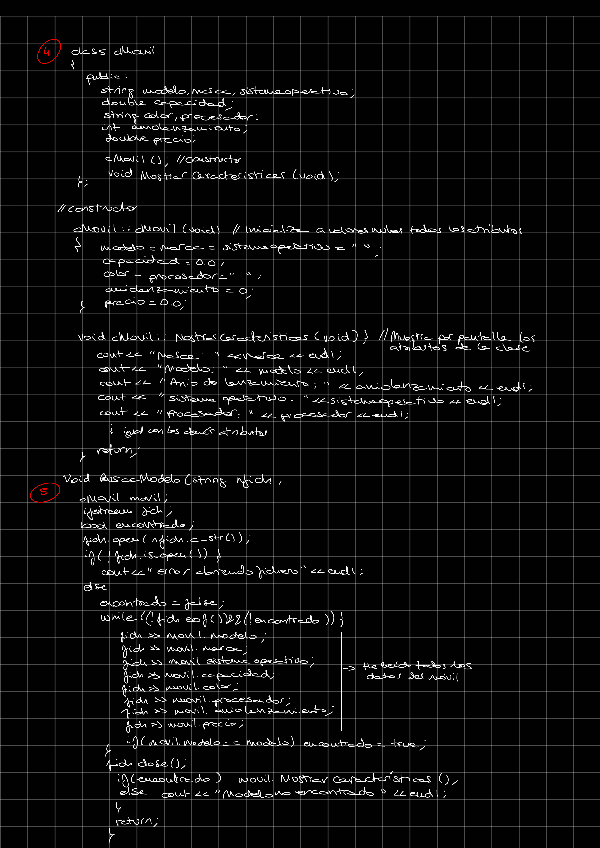 4
class cMovil
{
public:
string modelo, marca, sistemaoperativo;
double capacidad;
string color, procesador;
int aniolanzamiento;
double precio;
cMovil (); //constructor
void MostrarCaracteristicas (void);
};
//constructor
cMovil :: cMovil (void) // Inicializa a valores nulos todos los atributos
{ modelo = marca = sistemaoperativo = " ";
capacidad = 0.0;
color = procesador = " ";
aniolanzamiento = 0;
} precio = 0.0;
void cMovil :: MostrarCaracteristicas (void) { // Muestra por pantalla los
atributos de la clase
cout << "Marca: " << marca << endl;
cout << "Modelo: " << modelo << endl;
cout << "Anio de lanzamiento: " << aniolanzamiento << endl;
cout << "sistema operativo: " << sistemaoperativo << endl;
cout << "Procesador: " << procesador << endl;
igual con los demás atributos
} return;
5
void BuscaModelo (string nfich,
cMovil movil;
ifstream fich;
bool encontrado;
fich.open (nfich.c_str());
if (! fich.is_open ()) {
cout << "error abriendo fichero" << endl;
else
encontrado = false;
while ((! fich.eof()) && (! encontrado )) {
fich >> movil.modelo;
fich >> movil.marca;
fich >> movil.sistemaoperativo;
fich >> movil.capacidad;
fich >> movil.color;
fich >> movil.procesador;
fich >> movil.aniolanzamiento;
fich >> movil.precio;
-> he leido todos los
datos del movil
} if (movil.modelo == modelo) encontrado = true;
fich.close();
if (encontrado) movil.MostrarCaracteristicas ();
else cout << "Modelo no encontrado" << endl;
}
return;
}